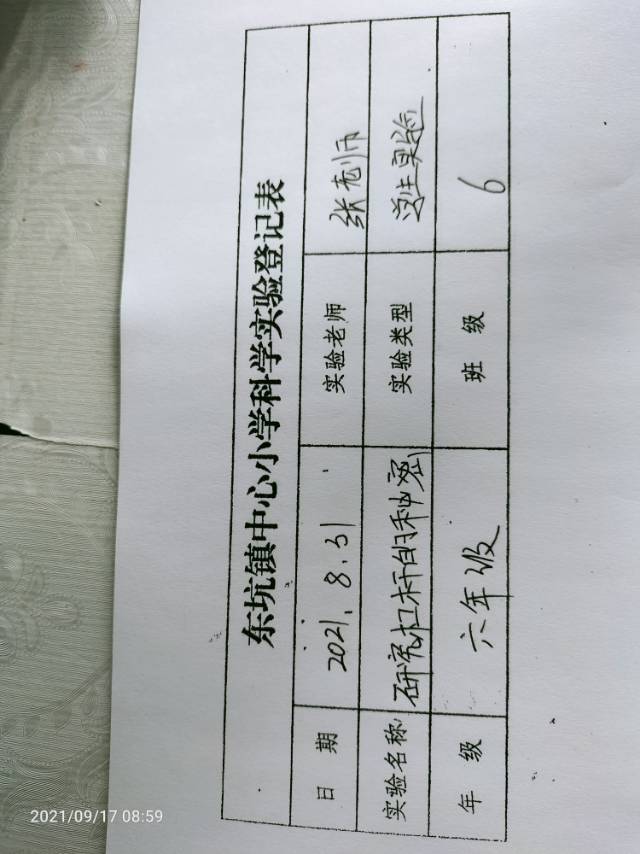 东坑镇中心小学科学实验登记表
日 期 2021.8.31 实验老师 张老师
实验名称 研究杠杆的秘密 实验类型 学生实验
年 级 六年级 班 级 6
2021/09/17 08:59